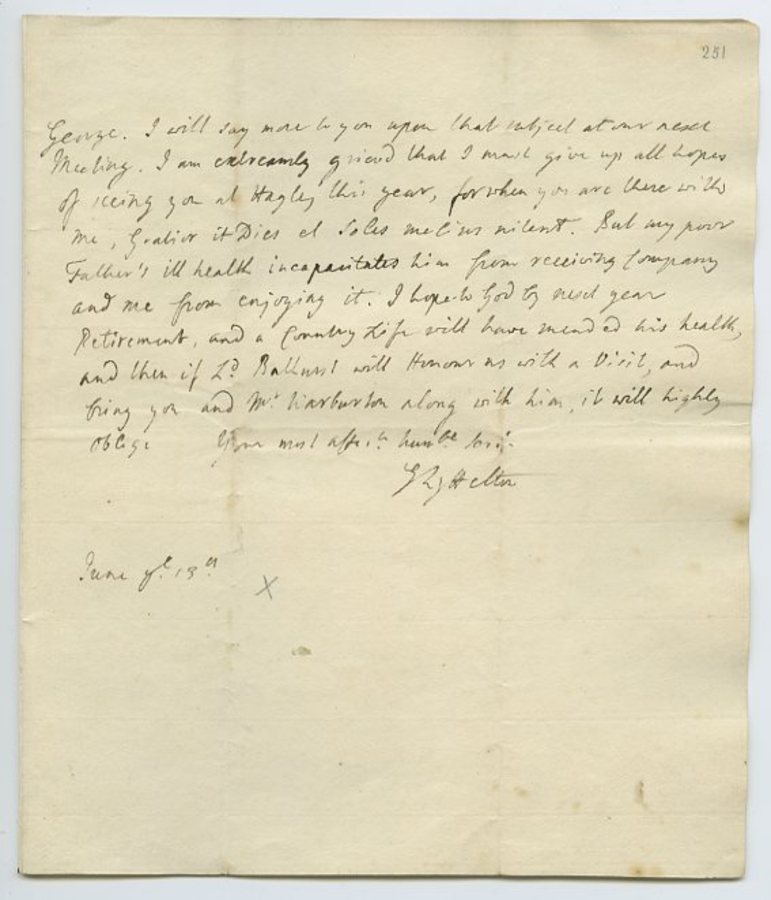 251
George. I will say more to you upon that subject at our next
Meeting. I am extreamly grievd that I must give up all hopes
of seeing you at Hagley this year, for when you are there with
me, Gratior it Dies et Soles melius nitent. But my poor
Father's ill health incapacitates him from receiving Company
and me from enjoying it. I hope to God by next year
Retirement, and a Country Life will have mended his health,
and then if Ld. Bathurst will Honour us with a Visit, and
bring you and Mr. Warburton along with him, it will highly
oblige Your most affecte. humble Servt.
G Lyttelton
June ye. 13th.
X